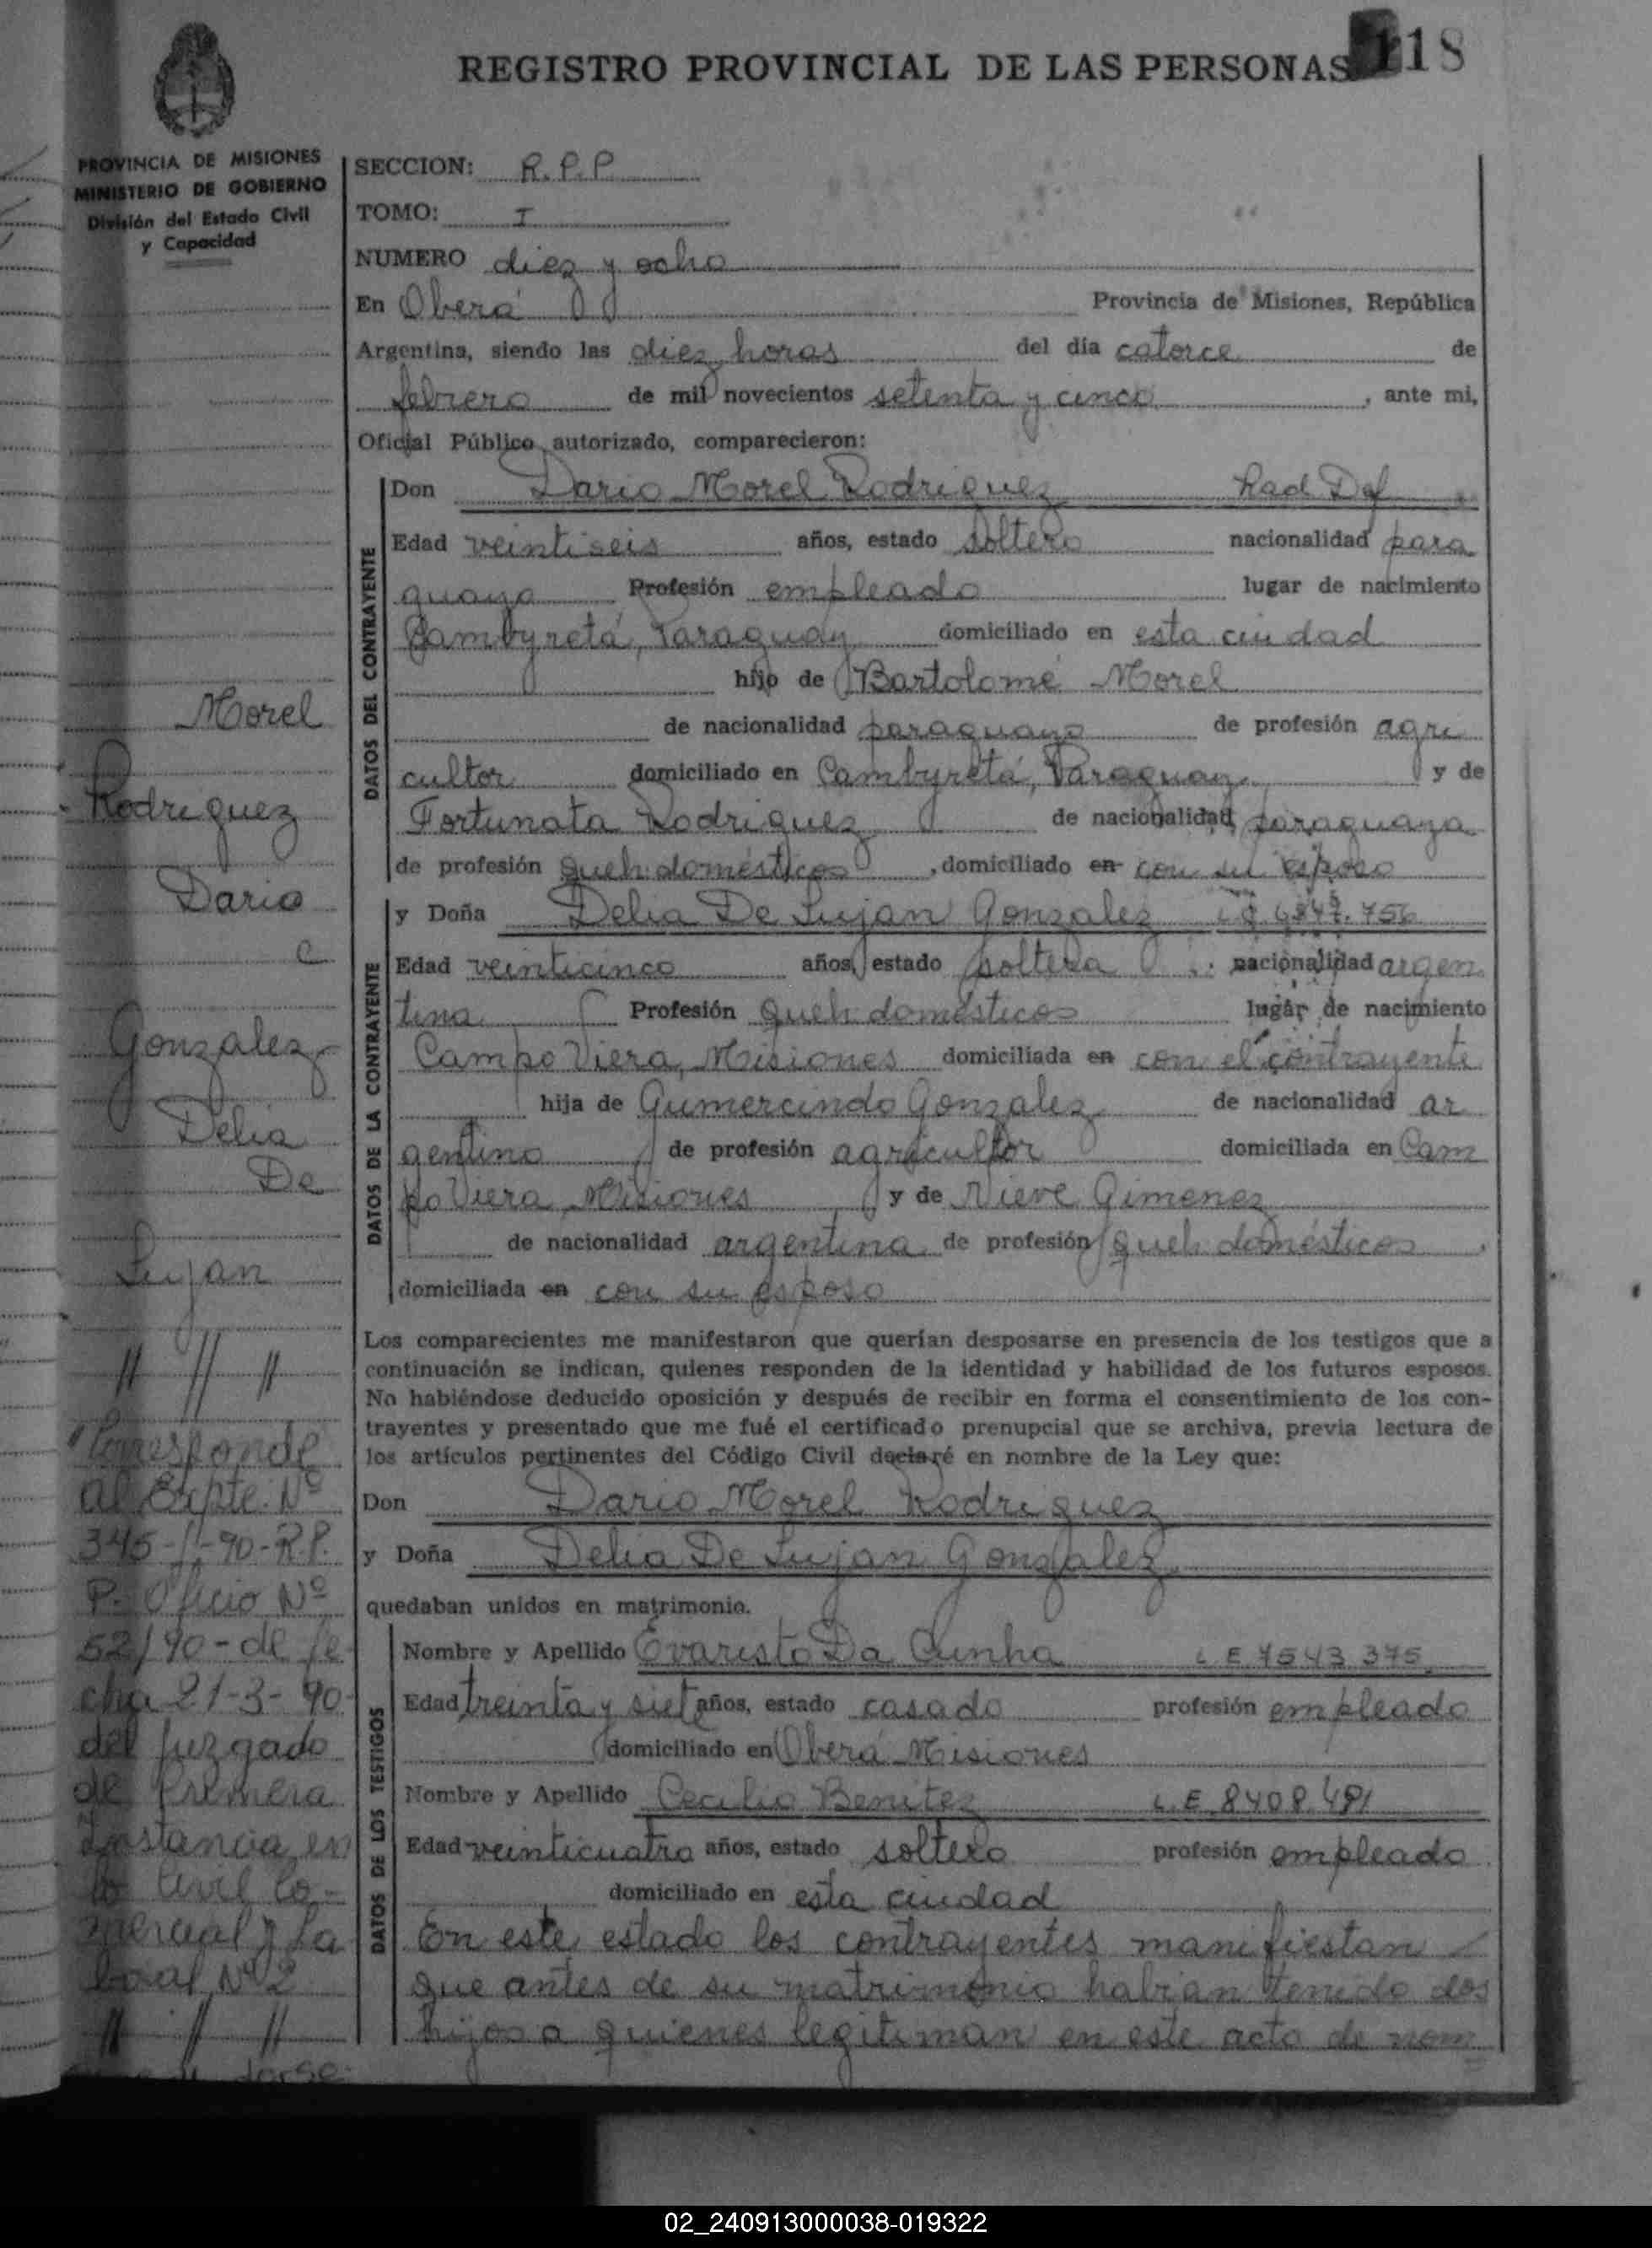 REGISTRO PROVINCIAL DE LAS PERSONAS 118
PROVINCIA DE MISIONES
MINISTERIO DE GOBIERNO
División del Estado Civil
y Capacidad
SECCION: R.P.P
TOMO: I
NUMERO diez y ocho
En Oberá Provincia de Misiones, República
Argentina, siendo las diez horas del día catorce de
febrero de mil novecientos setenta y cinco, ante mi,
Oficial Público autorizado, comparecieron:
DATOS DEL CONTRAYENTE
Don Dario Morel Rodriguez Rad Def
Edad veintiseis años, estado soltero nacionalidad para
guaya Profesión empleado lugar de nacimiento
Cambyretá, Paraguay domiciliado en esta ciudad
hijo de Bartolomé Morel
de nacionalidad paraguayo de profesión agri
cultor domiciliado en Cambyretá, Paraguay y de
Fortunata Rodriguez de nacionalidad paraguaya
de profesión queh. domésticos, domiciliado en con su esposo
DATOS DE LA CONTRAYENTE
y Doña Delia De Lujan Gonzalez
Edad veinticinco años, estado soltera nacionalidad argen
tina Profesión queh. domésticos lugar de nacimiento
Campo Viera, Misiones domiciliada en con el contrayente
hija de Gumercindo Gonzalez de nacionalidad ar
gentino de profesión agricultor domiciliada en Cam
po Viera, Misiones y de Nieve Gimenez
de nacionalidad argentina de profesión queh domésticos,
domiciliada en con su esposo
Los comparecientes me manifestaron que querían desposarse en presencia de los testigos que a
continuación se indican, quienes responden de la identidad y habilidad de los futuros esposos.
No habiéndose deducido oposición y después de recibir en forma el consentimiento de los con-
trayentes y presentado que me fué el certificado prenupcial que se archiva, previa lectura de
los artículos pertinentes del Código Civil declaré en nombre de la Ley que:
Don Dario Morel Rodriguez
y Doña Delia De Lujan Gonzalez
quedaban unidos en matrimonio.
DATOS DE LOS TESTIGOS
Nombre y Apellido Evaristo Da Cunha L E 7543 375
Edad treinta y siete años, estado casado profesión empleado
domiciliado en Oberá Misiones
Nombre y Apellido Cecilio Benitez L.E 8408.481
Edad veinticuatro años, estado soltero profesión empleado
domiciliado en esta ciudad
En este estado los contrayentes manifiestan
que antes de su matrimonio habian tenido dos
hijos a quienes legitiman en este acto de nom
Morel
Rodriguez
Dario
c
Gonzalez
Delia
De
Lujan
// // //
Corresponde
al Expte. Nº
345-//-90-R.P.
P. Oficio Nº
52/90-de fe
cha 21-3-90
del Juzgado
de Primera
Instancia en
lo Civil Co-
mercial y La
boral Nº 2
// // //
dorse
02_240913000038-019322